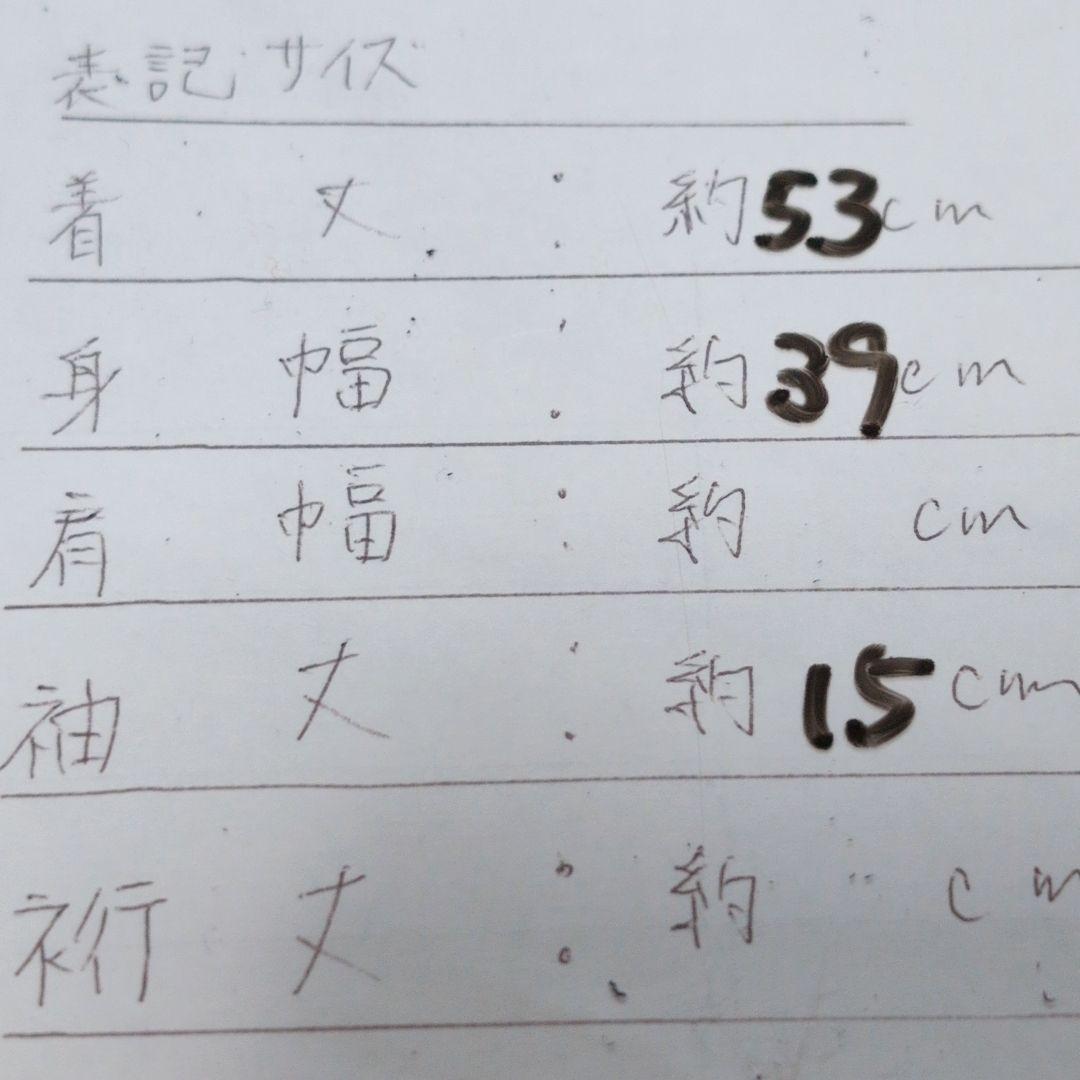 表記サイズ
着丈:約53cm
身幅:約39cm
肩幅:約 cm
袖丈:約15cm
裄丈:約 cm